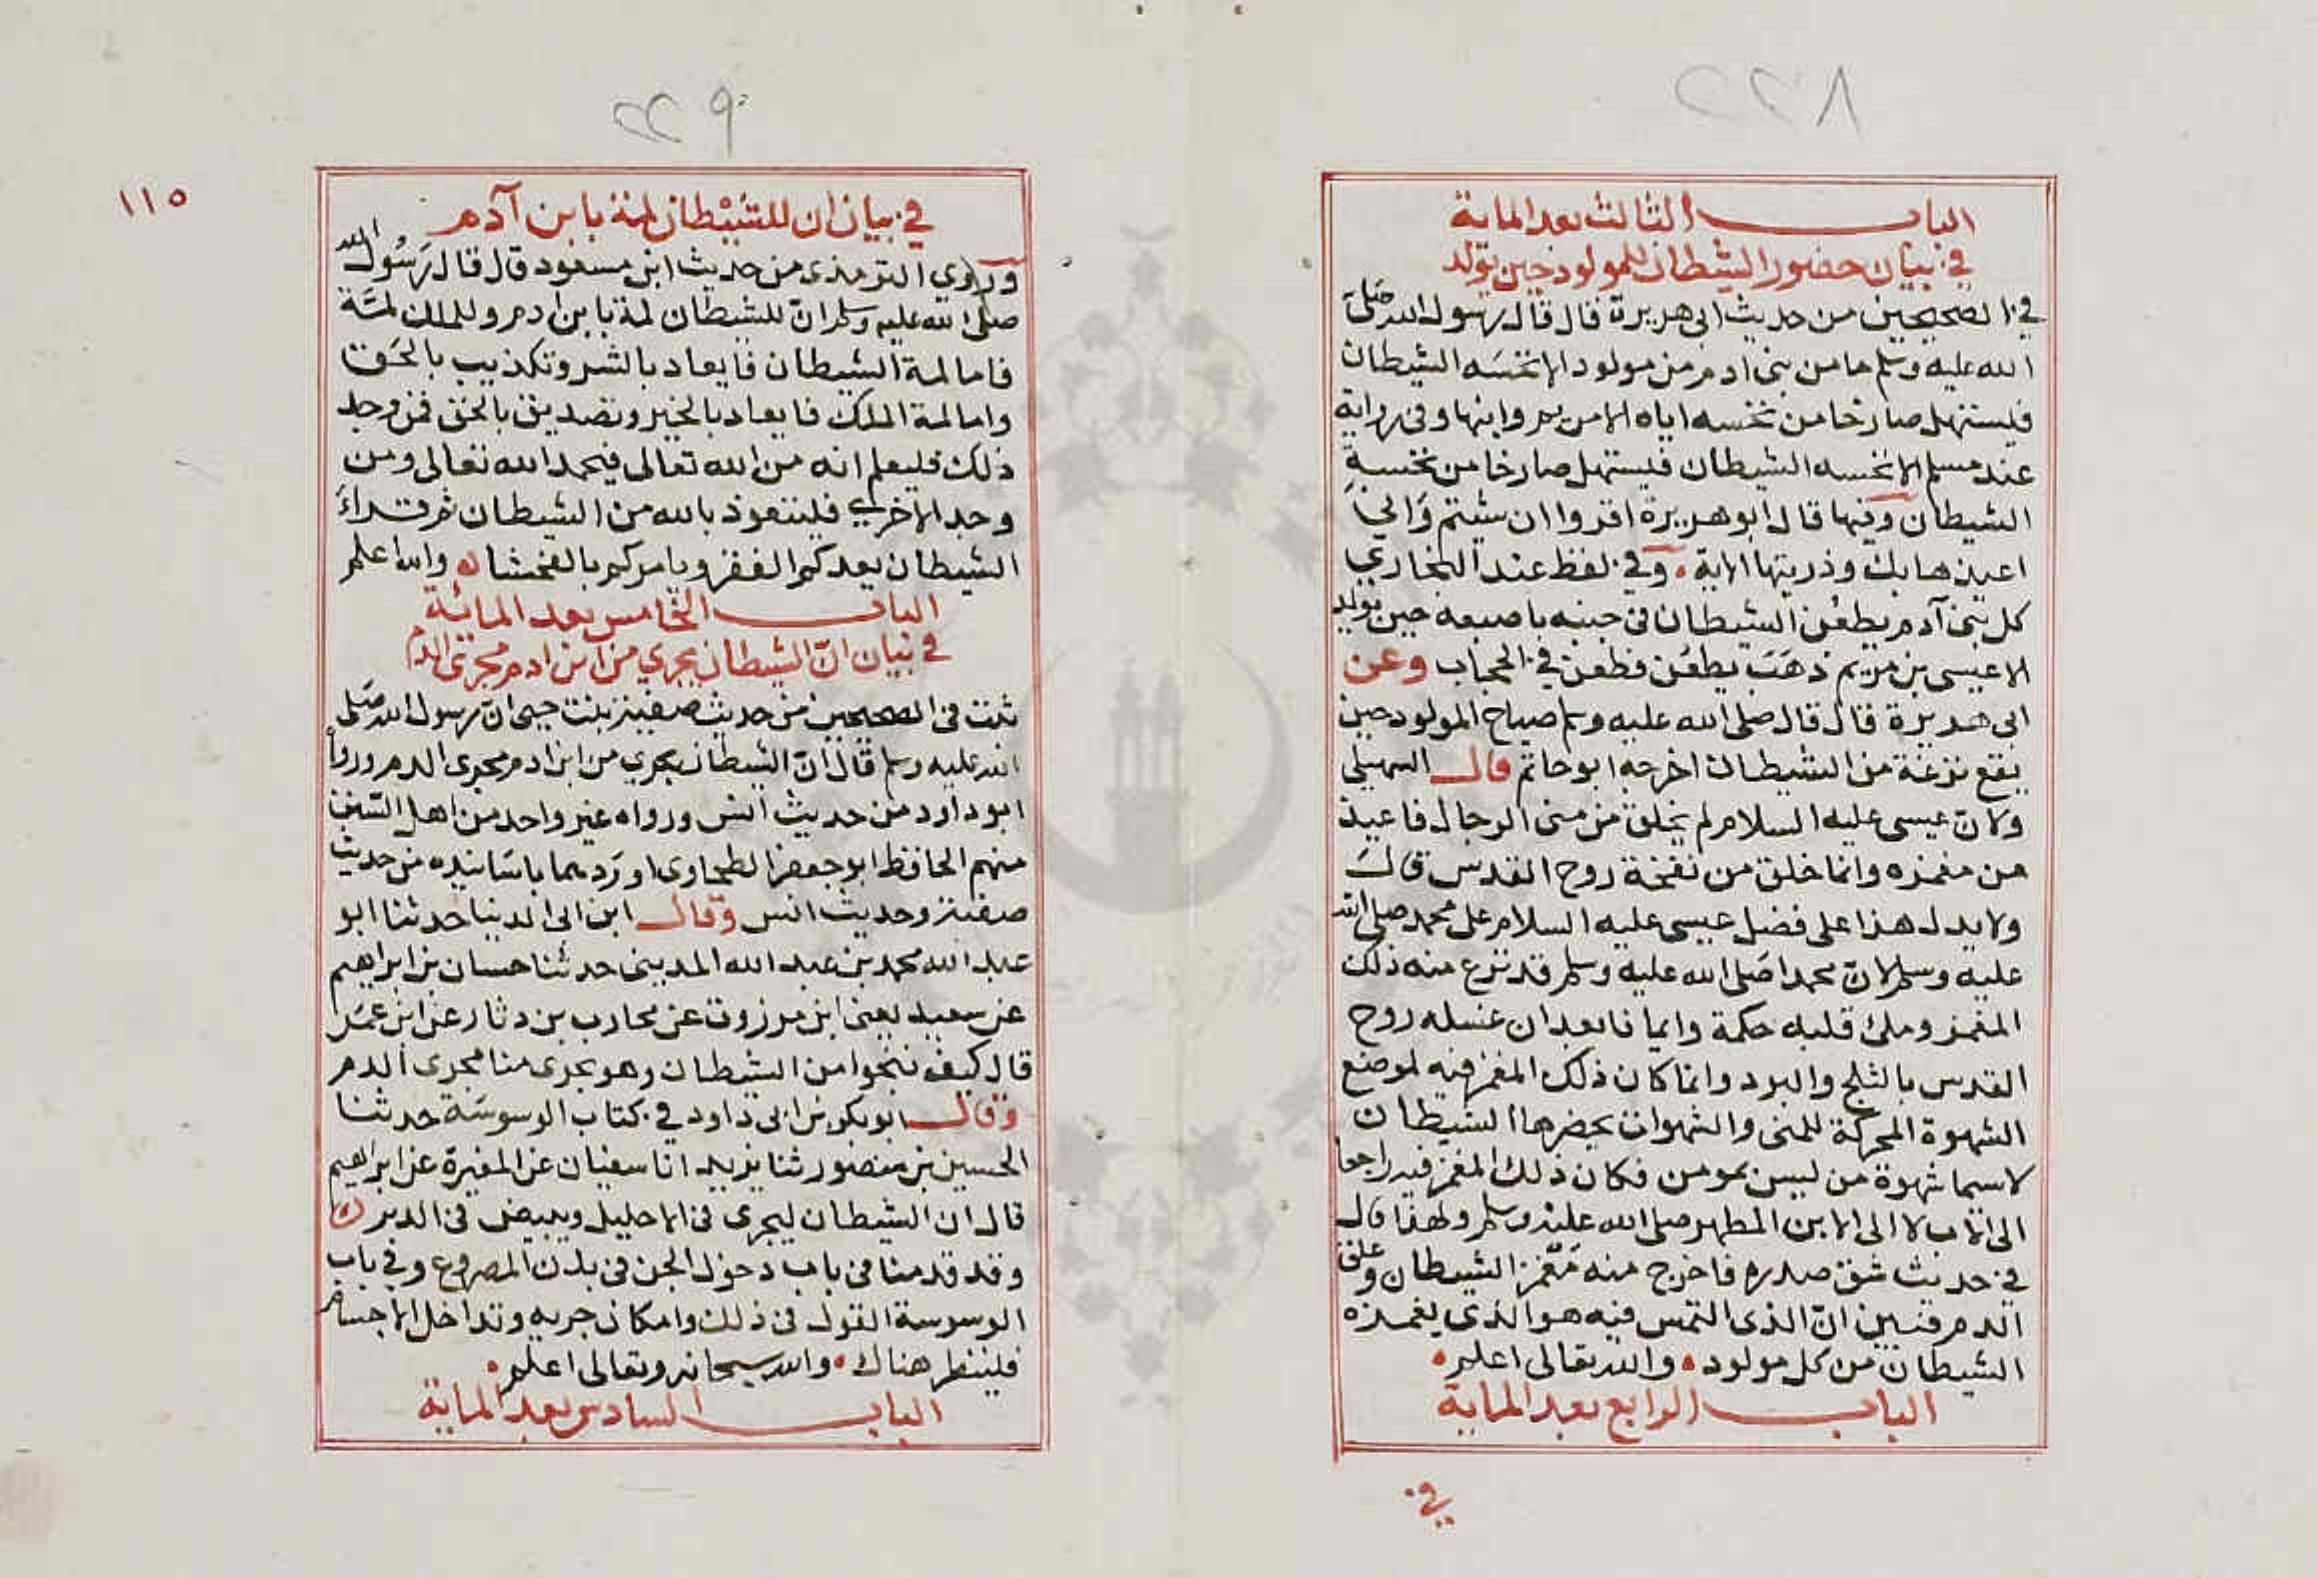 ٢٢٨
الباب الثالث بعد الماية
في بيان حضور الشطان للمولود حين يولد
في الصحيحين من حديث ابى هريرة قال قال رسول الله صلى
الله عليه وسلم ما من بنى ادم من مولود الا نخسه الشيطان
فليستهل صارخا من نخسه اياه الا مريم وابنها وفى رواية
عند مسلم الا نخسه الشيطان فليستهل صارخا من نخسة
الشيطان وفيها قال ابو هريرة اقروا ان شيتم وانى
اعيذها بك وذريتها الاية وفي لفظ عند البخاري
كل بنى آدم يطعن الشيطان فى جنبه باصبعه حين يولد
الا عيسى بن مريم ذهب يطعن فطعن في الحجاب وعن
ابى هريرة قال قال صلى الله عليه وسلم صياح المولود حين
يقع نزغة من الشيطان اخرجه ابو حاتم قال السهيلى
ولان عيسى عليه السلام لم يخلق من منى الرجال فاعيذ
من مغمزه وانما خلق من نفخة روح القدس قال
ولا يدل هذا على فضل عيسى عليه السلام على محمد صلى الله
عليه وسلم لان محمدا صلى الله عليه وسلم قد نزع منه ذلك
المغمز وملئ قلبه حكمة وايمانا بعد ان غسله روح
القدس بالثلج والبرد وانما كان ذلك المغمز فيه لموضع
الشهوة المحركة للمنى والشهوات يحضرها الشيطان
لاسيما شهوة من ليس بمومن فكان ذلك المغمز فيه راجعا
الى الاب لا الى الابن المطهر صلى الله عليه وسلم ولهذا قال
في حديث شق صدره فاخرج منه مغمز الشيطان وعلق
الدم فتبين ان الذى التمس فيه هو الذى يغمزه
الشيطان من كل مولود والله تعالى اعلم
الباب الرابع بعد الماية
في
٢٢٩
١١٥
في بيان ان للشيطان لمة بابن آدم
وروي الترمذى من حديث ابن مسعود قال قال رسول الله
صلى الله عليه وسلم ان للشيطان لمة بابن ادم وللملك لمة
فاما لمة الشيطان فايعاد بالشر وتكذيب بالحق
واما لمة الملك فايعاد بالخير وتصديق بالحق فمن وجد
ذلك فليعلم انه من الله تعالى فيحمد الله تعالى ومن
وجد الاخرى فليتعوذ بالله من الشيطان ثم قراء
الشيطان يعدكم الفقر ويامركم بالفحشا والله اعلم
الباب الخامس بعد المائة
في بيان ان الشيطان يجري من ابن ادم مجرى الدم
ثبت فى الصحيحين من حديث صفية بنت حيى ان رسول الله صلى
الله عليه وسلم قال ان الشيطان يجري من ابن ادم مجرى الدم وروا
ابو داود من حديث انس ورواه غير واحد من اهل السنن
منهم الحافظ ابو جعفر الطحاوى اوردهما باسانيده من حديث
صفية وحديث انس وقال ابن ابى الدنيا حدثنا ابو
عبد الله محمد بن عبد الله المدينى حدثنا حسان بن ابراهيم
عن سعيد يعنى ابن مرزوق عن محارب بن دثار عن ابن عمر
قال كيف ننجوا من الشيطان وهو يجرى منا مجرى الدم
وقال ابو بكر بن ابى داود في كتاب الوسوسة حدثنا
الحسين بن منصور ثنا يزيد انا سفيان عن المغيرة عن ابراهيم
قال ان الشيطان ليجرى فى الاحليل ويبيض فى الدبر
وقد قدمنا فى باب دخول الجن فى بدن المصروع وفي باب
الوسوسة القول فى ذلك وامكان جريه وتداخل الاجسام
فلينظر هناك والله سبحانه وتعالى اعلم
الباب السادس بعد الماية